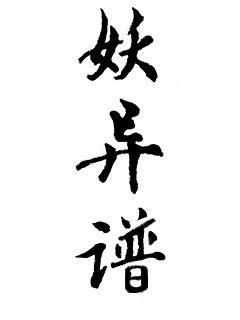 妖异谱